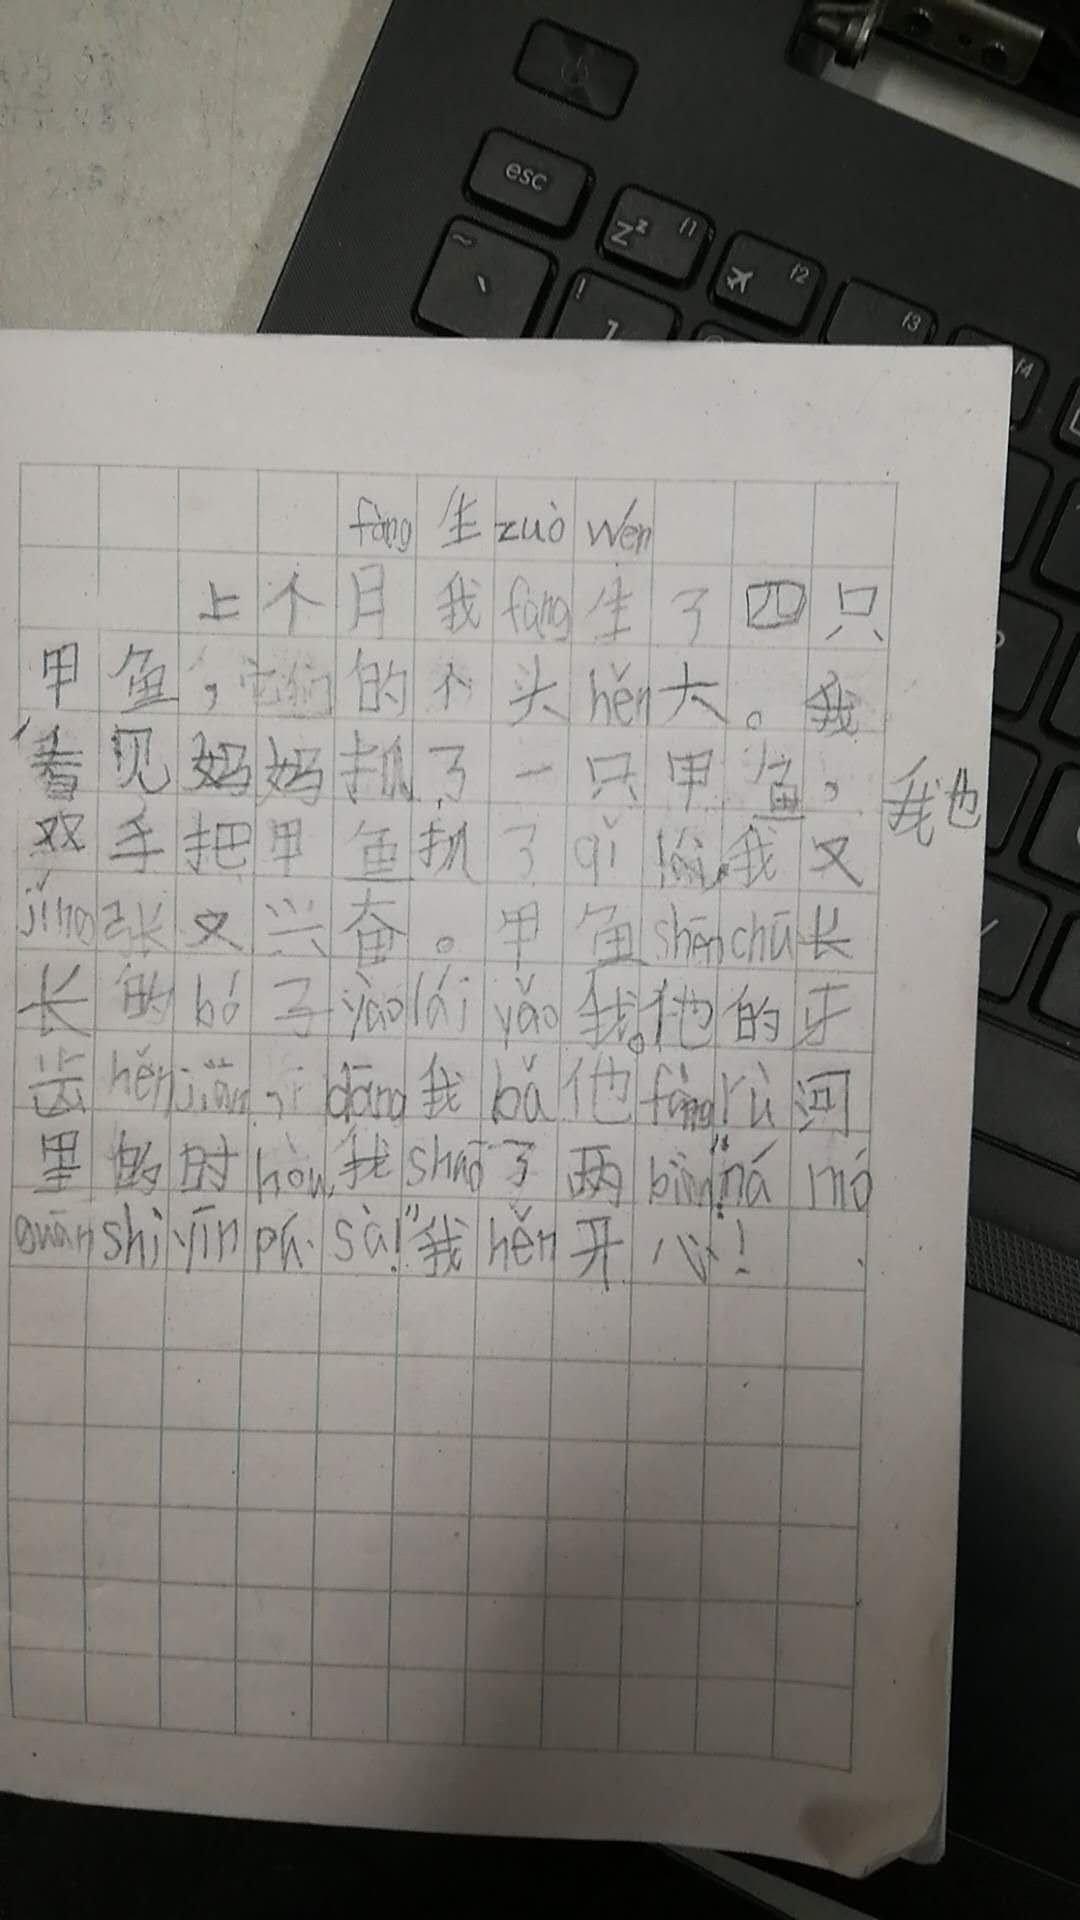 esc
Zz f1
f2
~ ` ! 1 f3
f4
fàng 生 zuò wén
上个月我 fàng 生了四只
甲鱼，它们的个头 hěn 大。我
看见妈妈抓了一只甲鱼， 我也
双手把甲鱼抓了 qǐ 我又
jǐng 张又兴奋。甲鱼 shēn chū 长
长的 bó 子 yào lái yǎo 我。他的牙
齿 hěn jiān，dāng 我 bǎ 他 fàng rù 河
里的时 hòu，我 shuō 了两 biàn "ná mó
guān shì yīn pú sà!" 我 hěn 开心！